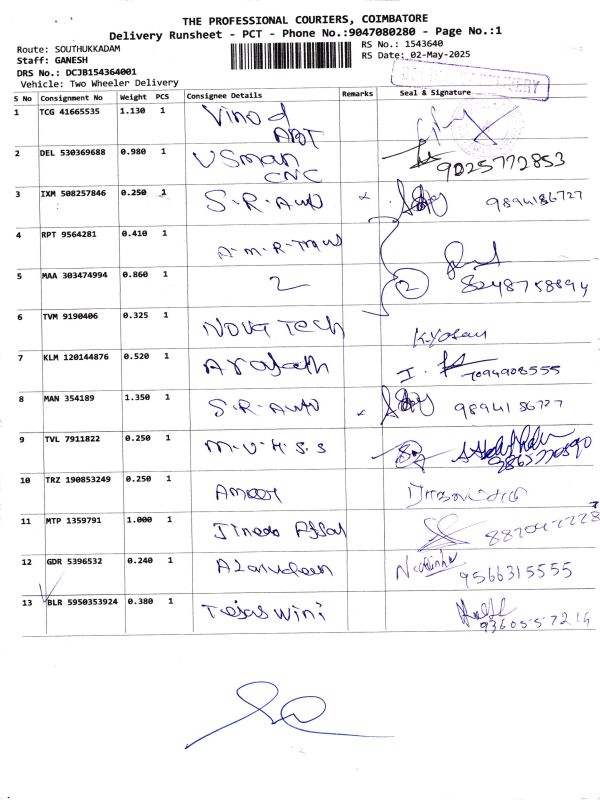 THE PROFESSIONAL COURIERS, COIMBATORE
Delivery Runsheet - PCT - Phone No.:9047080280 - Page No.:1
Route: SOUTHUKKADAM RS No.: 1543640
Staff: GANESH RS Date: 02-May-2025
DRS No.: DCJB154364001
Vehicle: Two Wheeler Delivery
S No Consignment No Weight PCS Consignee Details Remarks Seal & Signature
1 TCG 41665535 1.130 1 Vinod
2 DEL 530369688 0.980 1 Usman CNC 9025772853
3 IXM 508257846 0.250 1 S.R.Auto 9894186727
4 RPT 9564281 0.410 1
5 MAA 303474994 0.860 1 2 2 8248758894
6 TVM 9190406 0.325 1 Nova Tech
7 KLM 120144876 0.520 1 Arafath 7094908555
8 MAN 354189 1.350 1 S.R.Auto 9894186727
9 TVL 7911822 0.250 1 M.U.H.S.S
10 TRZ 190853249 0.250 1
11 MTP 1359791 1.000 1
12 GDR 5396532 0.240 1 9566315555
13 BLR 5950353924 0.380 1 Tejaswini